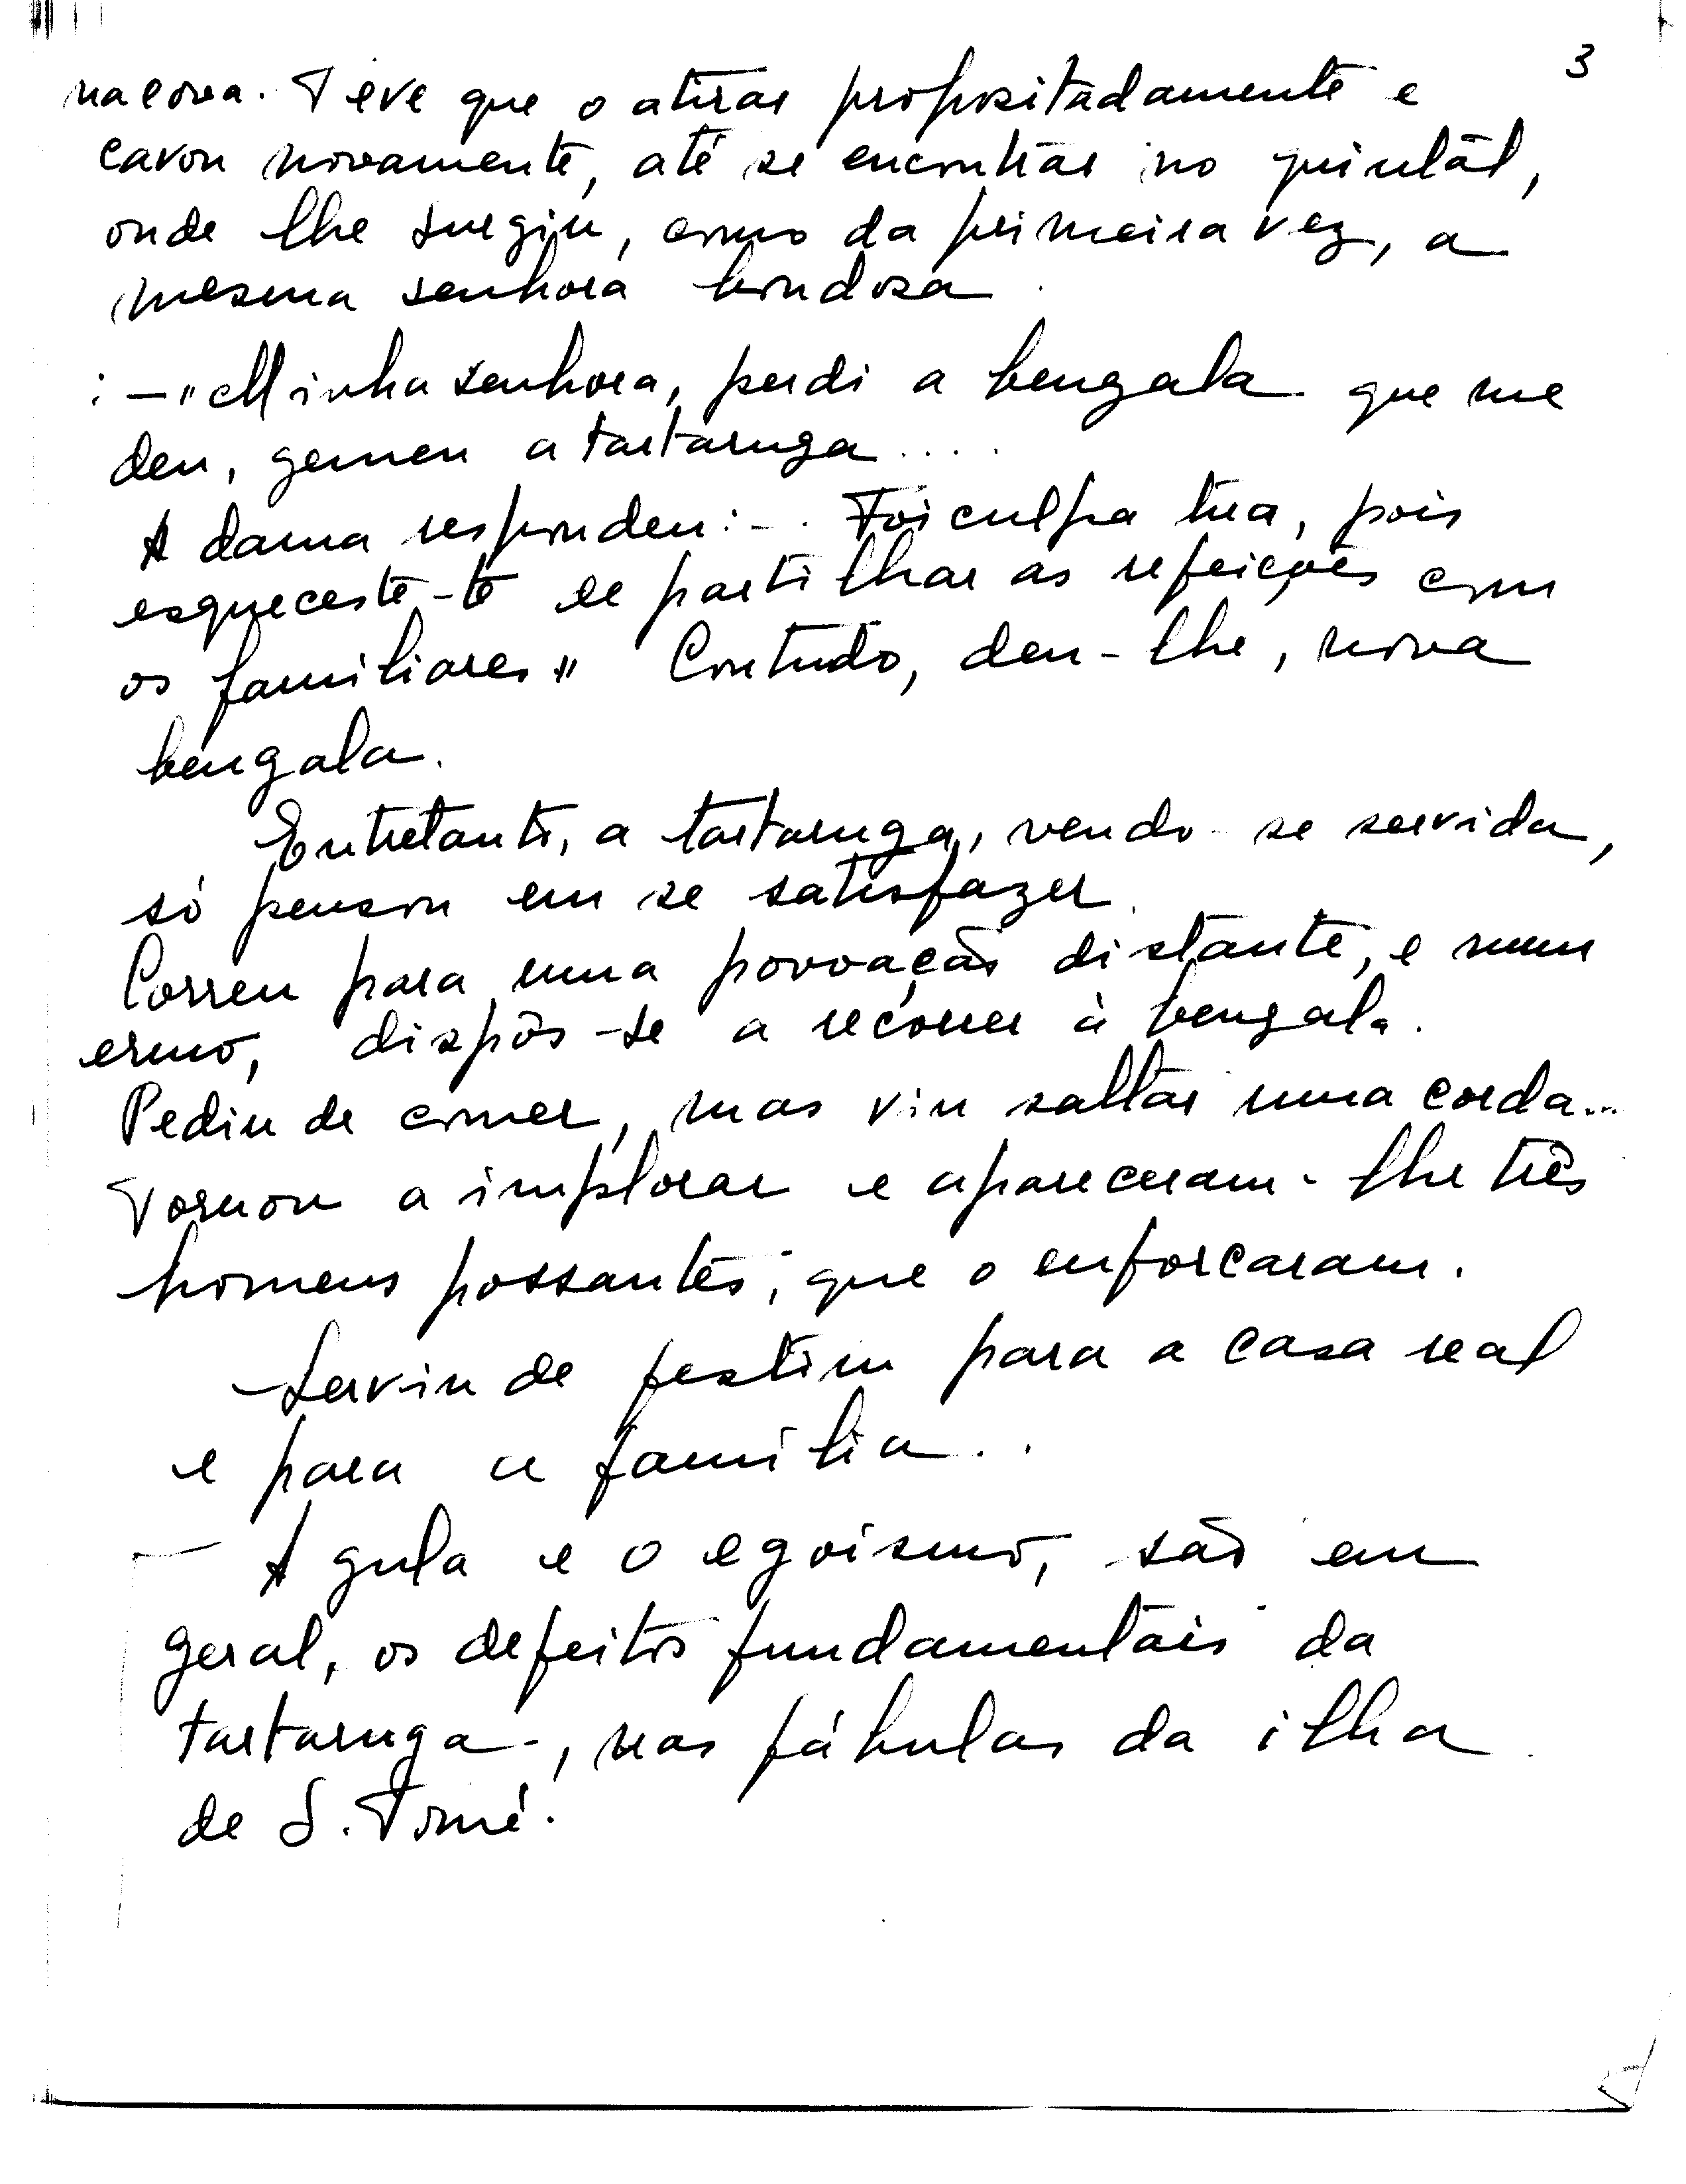 3
na cova. Teve que o atirar propositadamente e
cavou novamente, até se encontrar no quintal,
onde lhe surgiu, como da primeira vez, a
mesma senhora bondosa.
: — "Minha senhora, perdi a bengala que me
deu, gemeu a tartaruga....
A dama respondeu: - . Foi culpa tua, pois
esqueceste-te de partilhar as refeições com
os familiares" Contudo, deu-lhe, nova
bengala.
Entretanto, a tartaruga, vendo-se servida,
só pensou em se satisfazer.
Correu para uma povoação distante, e num
ermo, dispôs-se a recorrer à bengala.
Pediu de comer, mas viu saltar uma corda...
Tornou a implorar e apareceram-lhe três
homens possantes, que o enforcaram.
Serviu de festim para a casa real
e para a família...
— A gula e o egoismo, são em
geral, os defeitos fundamentais da
tartaruga-, nas fábulas da ilha
de S. Tomé.